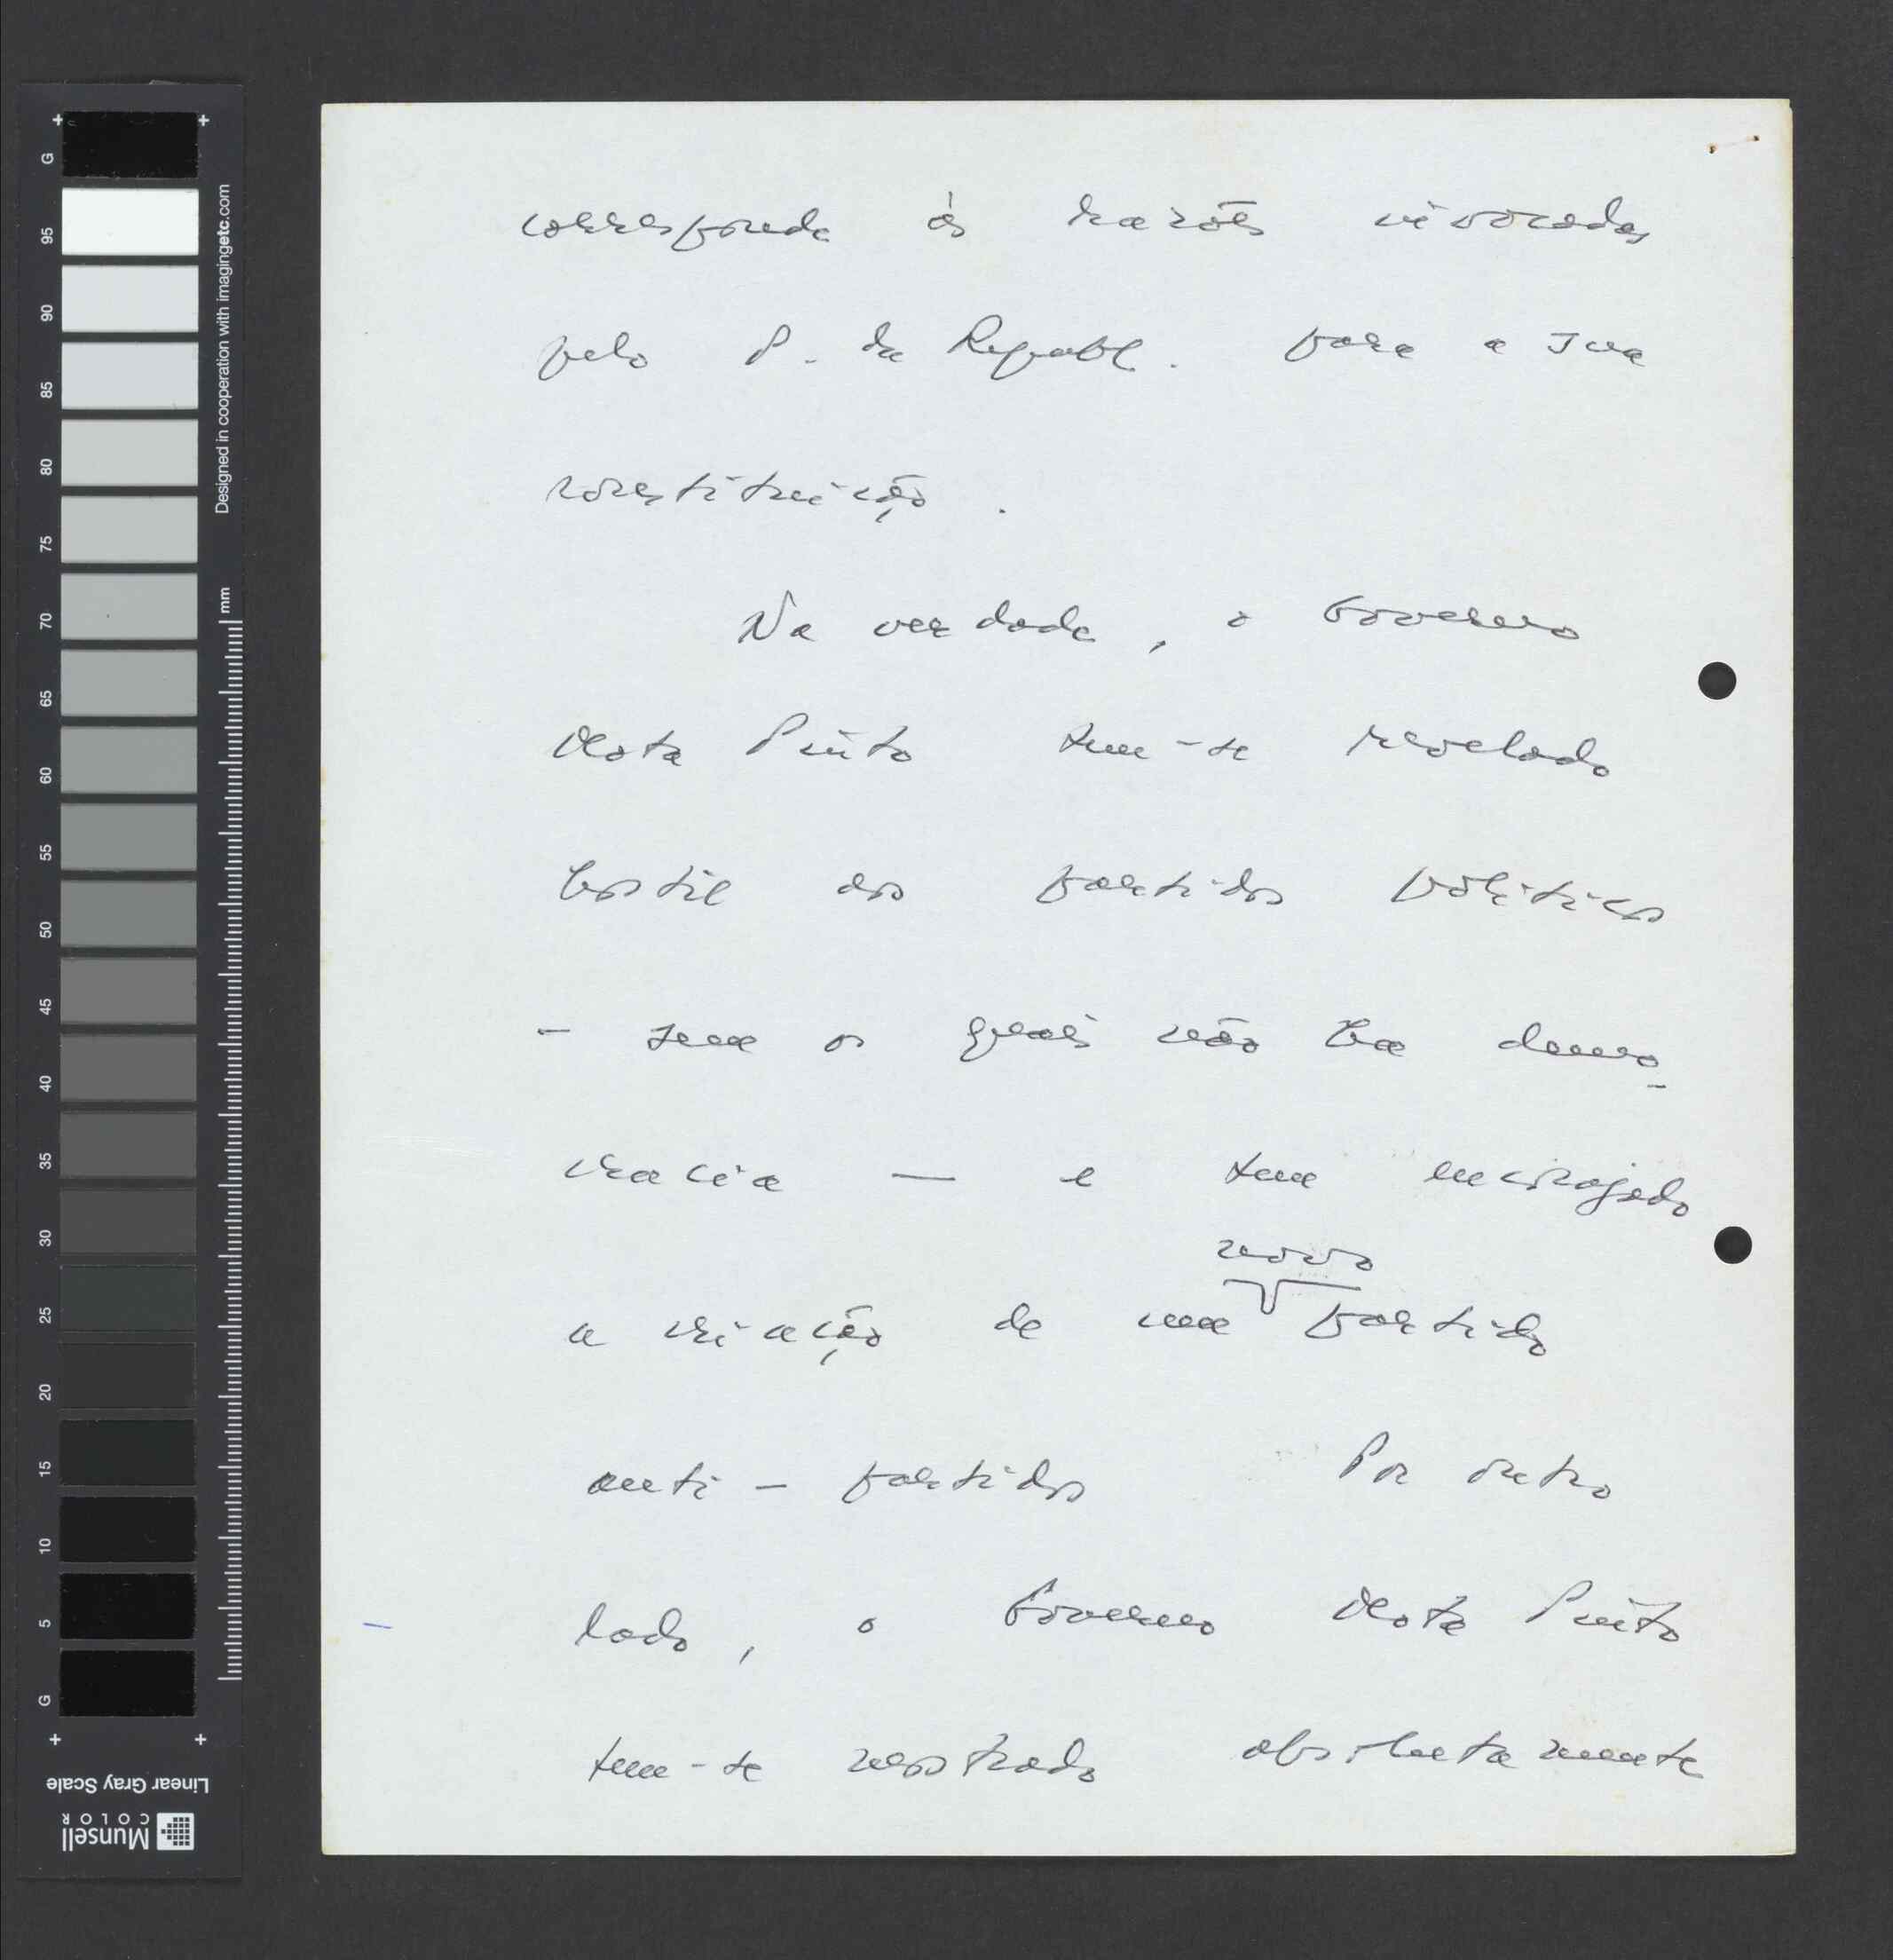 corresponde às razões invocadas
pelo P. da Republ. para a sua
constituição.
Na verdade, o Governo
Mota Pinto tem-se revelado
hostil aos partidos políticos
- sem os quais não há demo-
cracia — e tem encorajado
novo
a criação de um partido
anti-partidos Por outro
lado, o Governo Mota Pinto
tem-se mostrado absolutamente
G
95
90
85
80
75
70
65
60
55
50
45
40
35
30
25
20
15
10
5
G
Designed in cooperation with imagingetc.com
mm
Linear Gray Scale
Munsell
COLOR